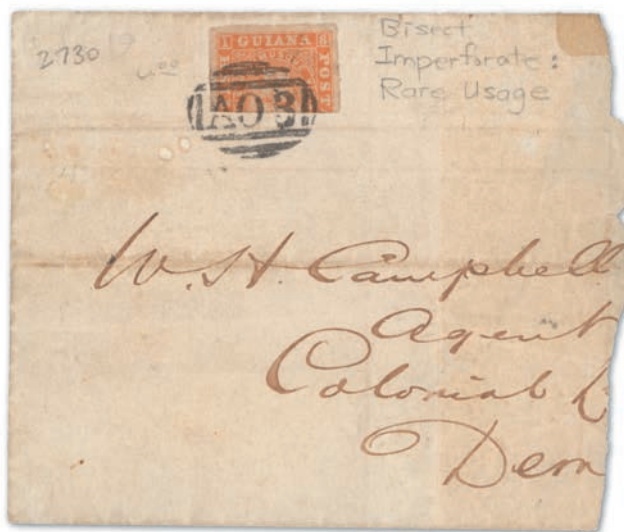 2730 19
u.00
1 GUIANA 8
POST
A03
Bisect
Imperforate:
Rare Usage
W. H. Campbell
Agent
Colonial
Dem